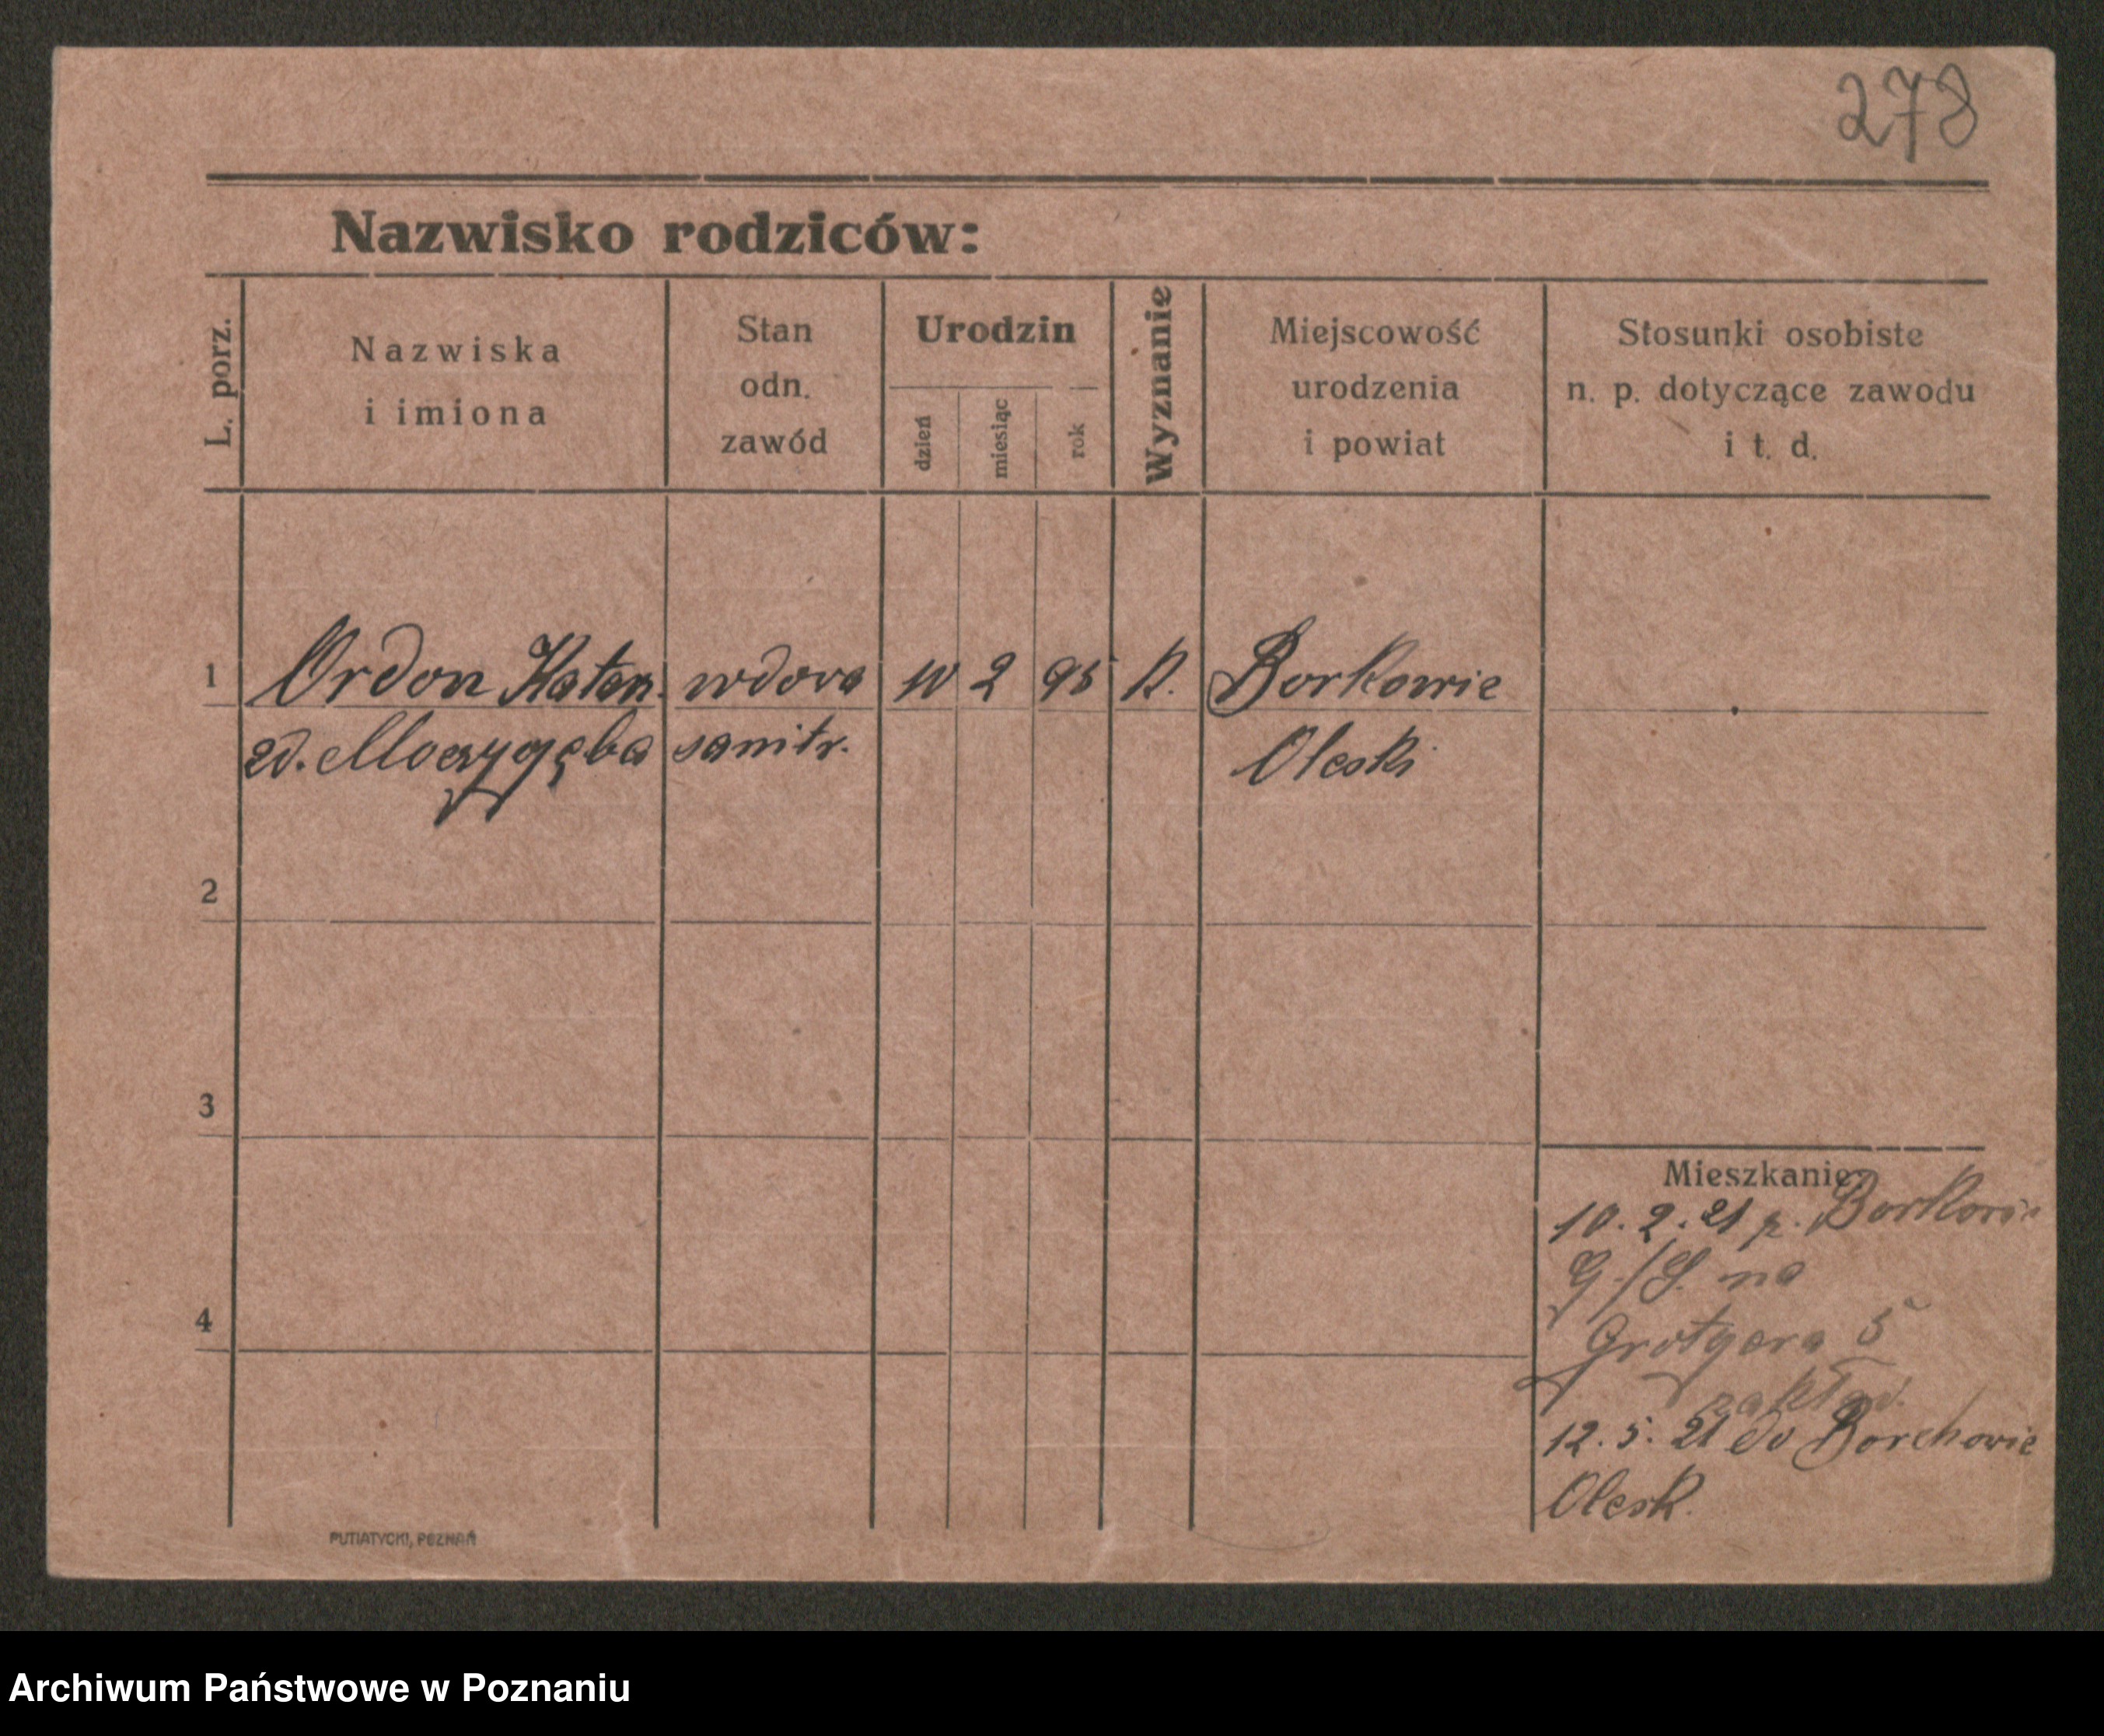 278
Nazwisko rodziców:
L. porz.
Nazwiska
i imiona
Stan
odn.
zawód
Urodzin
dzień
miesiąc
rok
Wyznanie
Miejscowość
urodzenia
i powiat
Stosunki osobiste
n. p. dotyczące zawodu
i t. d.
1 Ordon Katarz. wdova 10 2 95 K. Borkowie
zd. Moczygęba sanitr. Oleski
2
3
4
Mieszkanie
10. 2. 21 z. Borkowie
G./S. na
Grotgera 5
zakład.
12. 5. 21 do Borchowie
Olesk.
PUTIATYCKI, POZNAŃ
Archiwum Państwowe w Poznaniu